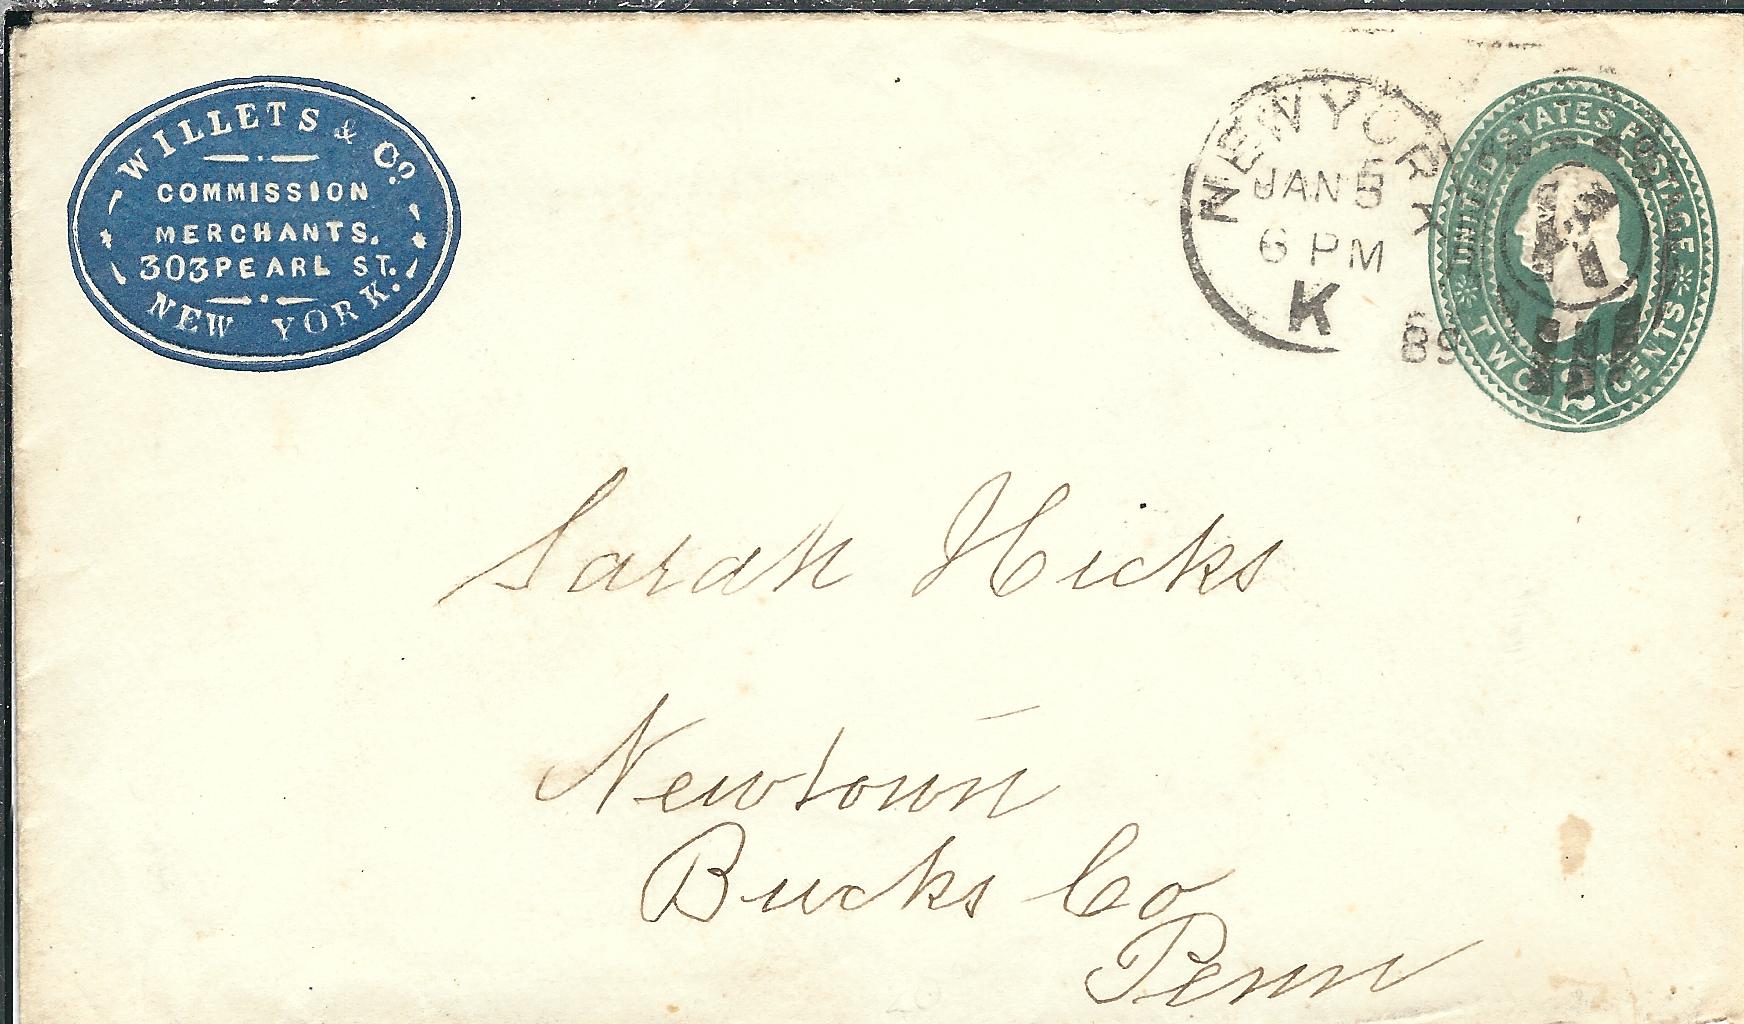 WILLETS & Co.
COMMISSION
MERCHANTS.
303 PEARL ST.
NEW YORK.
NEW YORK
JAN 5
6 PM
K
89
UNITED STATES POSTAGE
TWO 2 CENTS
Sarah Hicks
Newtown
Bucks Co
Penn